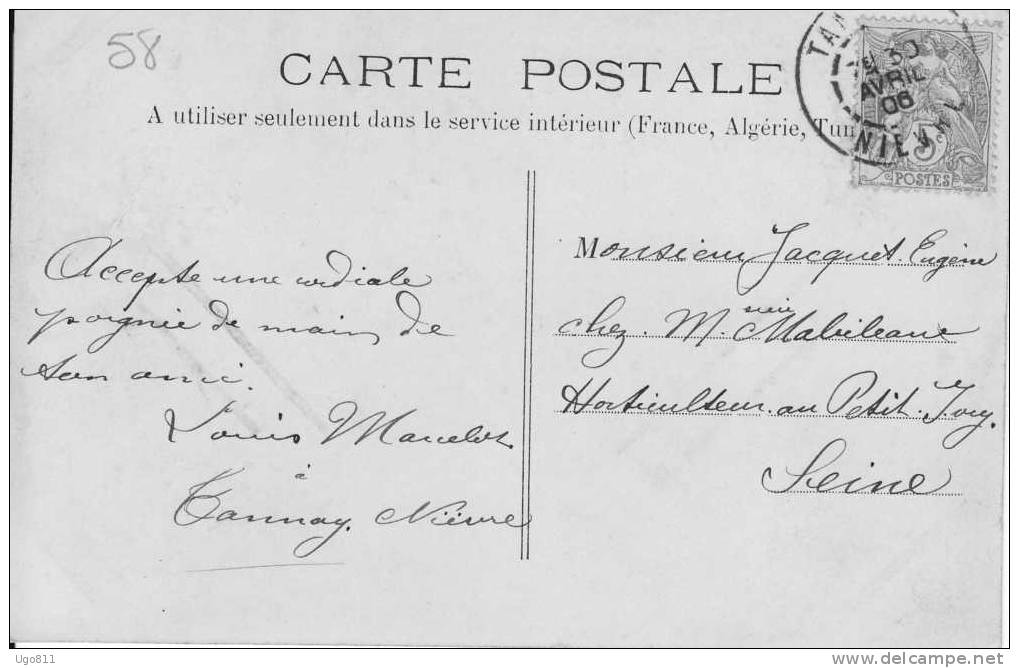 58
CARTE POSTALE
A utiliser seulement dans le service intérieur (France, Algérie, Tun
TAN
30
AVRIL
06
NIEV
5c
POSTES
Accepte une cordiale
poignée de main de
son ami.
Louis Marcelot
à
Tannay. Nièvre
Monsieur Jacquet Eugène
chez M.
Horticulteur au Petit Ivry.
Seine
Ugo811
delcampe.net